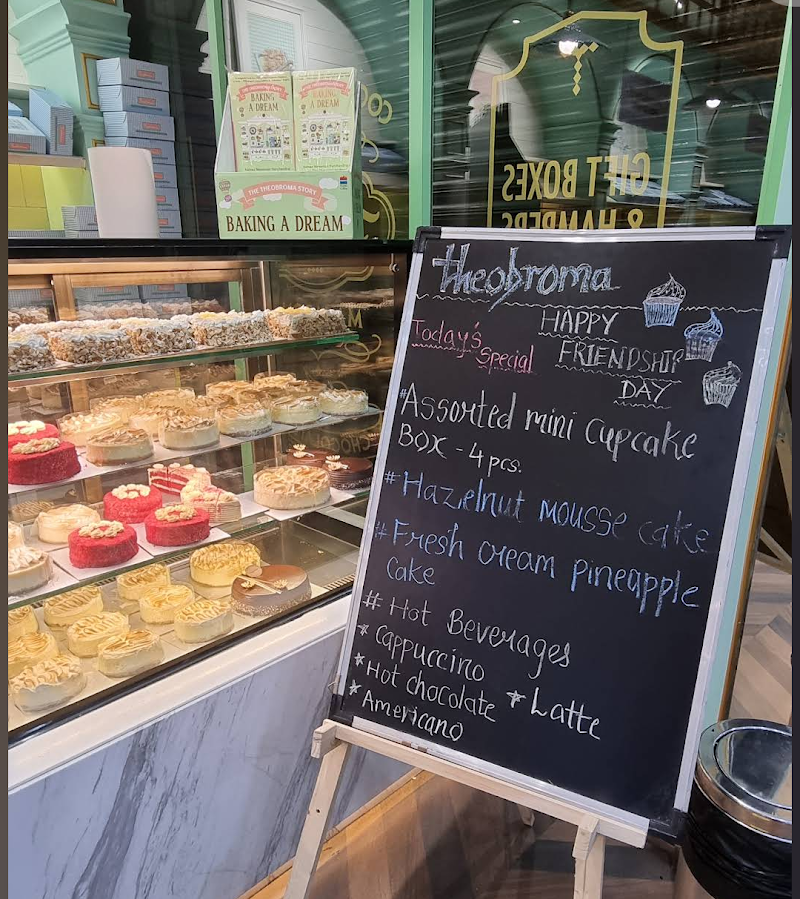 BAKING
A DREAM
BAKING
A DREAM
THE THEOBROMA STORY
BAKING A DREAM
GIFT BOXES
& HAMPERS
theobroma
HAPPY
Today's
Special
FRIENDSHIP
DAY
#Assorted mini cupcake
BOX - 4 pcs.
#Hazelnut mousse cake
#Fresh cream pineapple
cake
# Hot Beverages
* Cappuccino
* Hot chocolate * Latte
* Americano